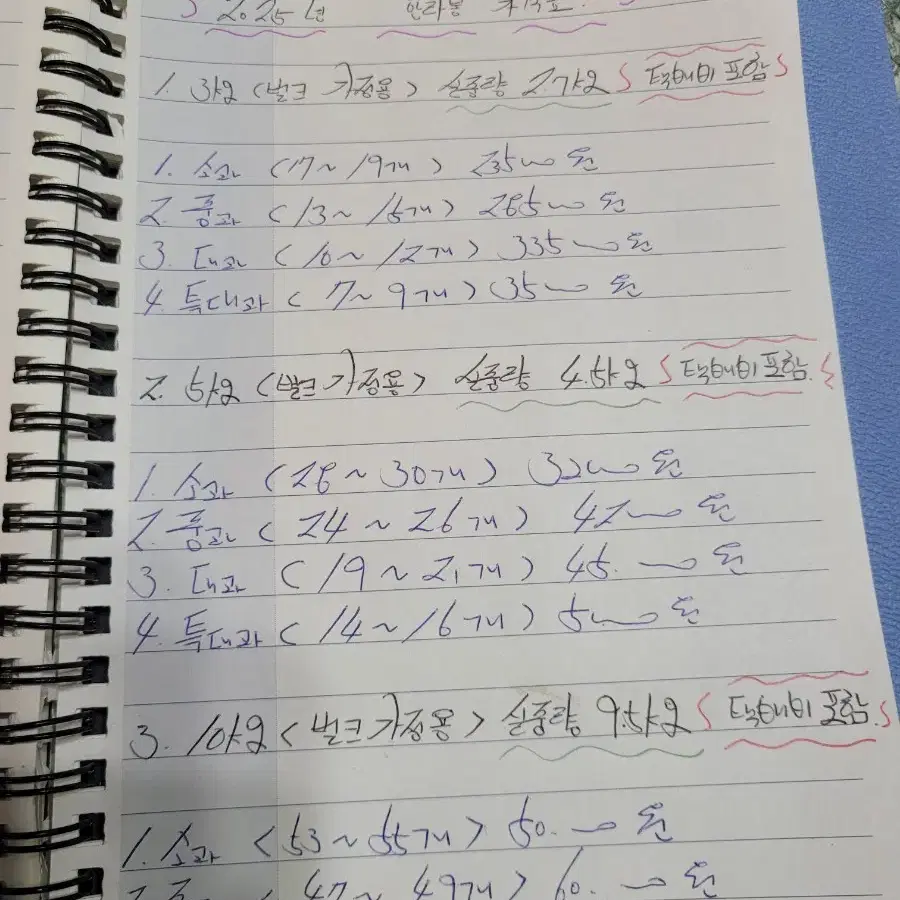 2025년 한라봉
1. 3kg <벌크 가정용> 실중량 2.7kg 택배비 포함
1. 소과 (17~19개) 23500원
2. 중과 (13~15개) 28500원
3. 대과 (10~12개) 33500원
4. 특대과 (7~9개) 35000원
2. 5kg <벌크 가정용> 실중량 4.5kg 택배비 포함.
1. 소과 (28~30개)
2. 중과 (24~26개) 42000원
3. 대과 (19~21개) 45.000원
4. 특대과 (14~16개) 50000원
3. 10kg <벌크 가정용> 실중량 9.5kg 택배비 포함.
1. 소과 <53~55개> 50.000원
47~49개> 60.000원